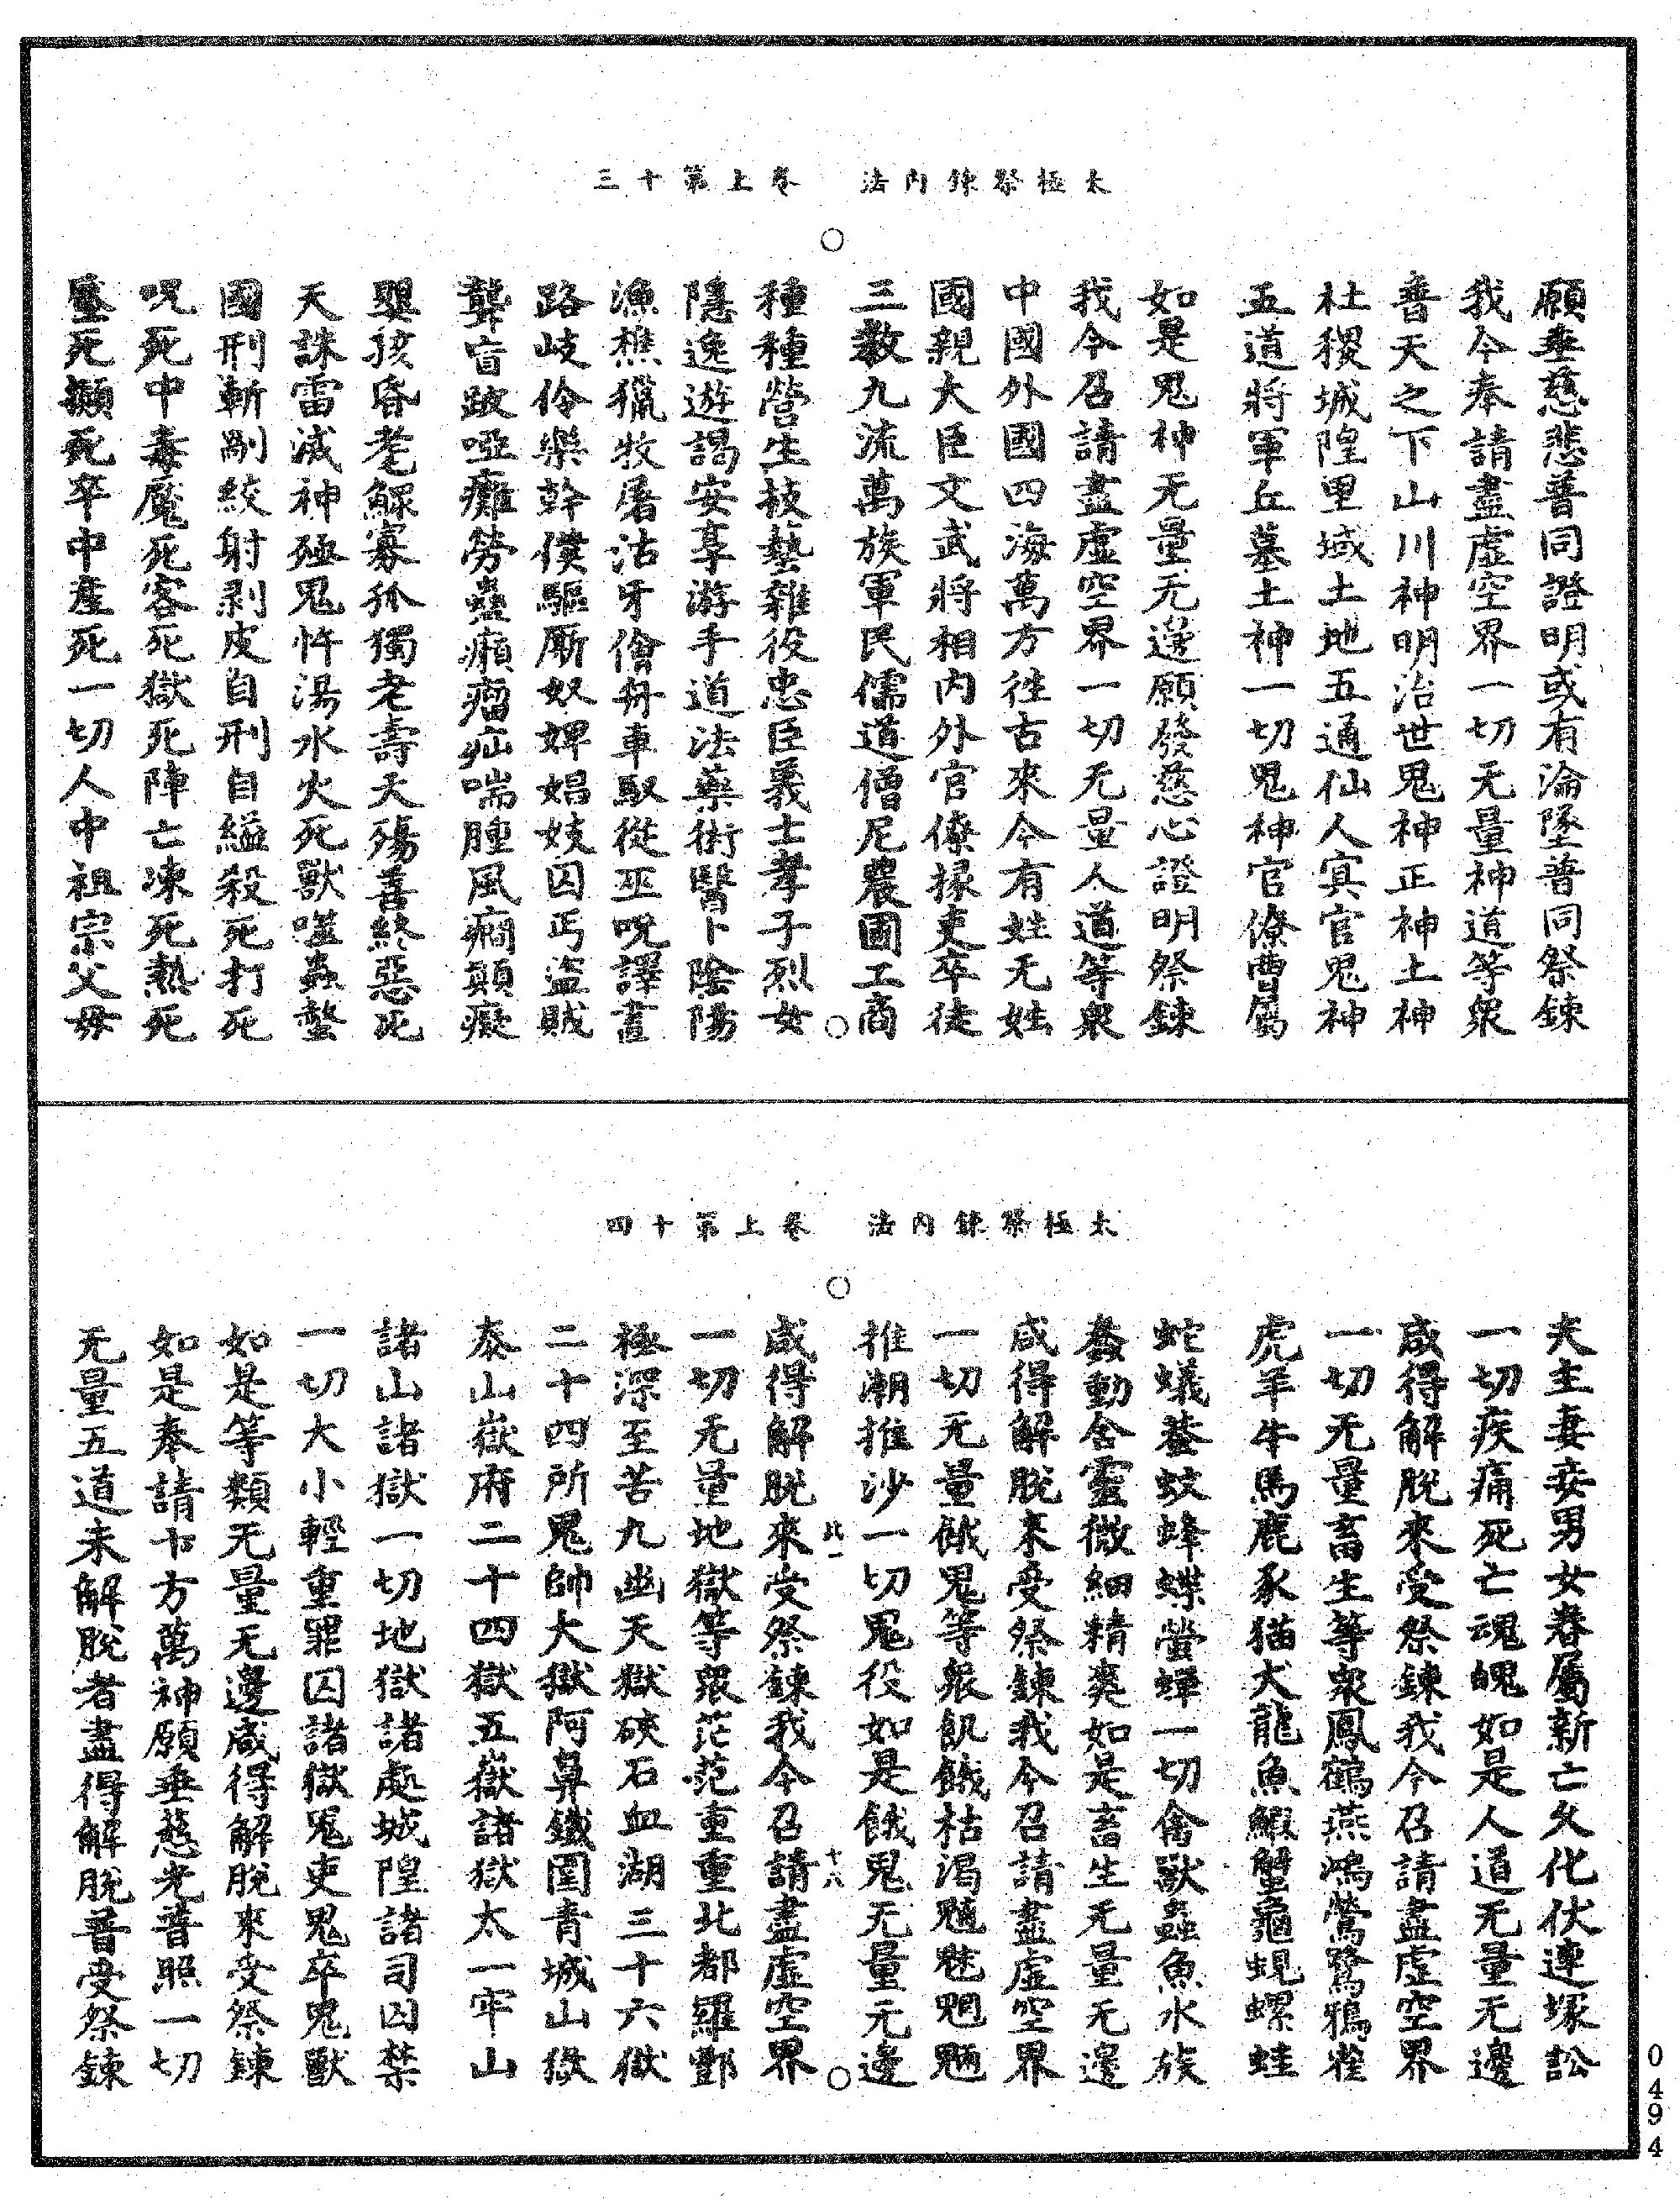 太極祭鍊內法　卷上第十三
願垂慈悲普同證明或有淪墜普同祭鍊
我今奉請盡虛空界一切无量神道等衆
普天之下山川神明治世鬼神正神土神
社稷城隍里域土地五通仙人冥官鬼神
五道將軍丘墓土神一切鬼神官僚曹屬
如是鬼神无量无邊願發慈心證明祭鍊
我今召請盡虛空界一切无量人道等衆
中國外國四海萬方徃古來今有姓无姓
國親大臣文武將相內外官僚掾吏卒徒
三教九流萬族軍民儒道僧尼農圃工商
種種營生技藝雜役忠臣義士孝子烈女
隱逸遊謁安享游手道法藥術醫卜陰陽
漁樵獵牧屠沽牙儈舟車馭從巫呪譯畫
路岐伶樂幹僕驅厮奴婢娼妓囚丐盜賊
聾盲跛啞癱勞蠱癩瘤疝喘腫風癎顛癡
嬰孩昏耄鰥寡孤獨老壽夭殤善終惡死
天誅雷滅神殛鬼忤湯水火死獸噬蟲螫
國刑斬剮絞射剥皮自刑自縊殺死打死
呪死中毒魘死客死獄死陣亡凍死熱死
墜死攧死卒中產死一切人中祖宗父母
太極祭鍊內法　卷上第十四
夫主妻妾男女眷屬新亡久化伏連塚訟
一切疾痛死亡魂魄如是人道无量无邊
咸得解脫來受祭鍊我今召請盡虛空界
一切无量畜生等衆鳳鶴燕鴻鶯鷺鴉雀
虎羊牛馬鹿豕猫犬龍魚鰕蟹龜蜆螺蛙
蛇蟻蠶蚊蜂蝶螢蟬一切禽獸蟲魚水族
蠢動含靈微細精爽如是畜生无量无邊
咸得解脫來受祭鍊我今召請盡虛空界
一切无量餓鬼等衆飢餓枯渴魑魅魍魎
推潮推沙一切冤役如是餓鬼无量无邊
咸得解脫來受祭鍊我今召請盡虛空界
一切无量地獄等衆茫茫重重北都羅酆
極深至苦九幽天獄硤石血湖三十六獄
二十四所鬼帥大獄阿鼻鐵圍青城山獄
泰山嶽府二十四獄五嶽諸獄太一牢山
諸山諸獄一切地獄諸處城隍諸司囚禁
一切大小輕重罪囚諸獄冤吏鬼卒鬼獸
如是等類无量无邊咸得解脫來受祭鍊
如是奉請十方萬神願垂慈光普照一切
无量五道未解脫者盡得解脫普受祭鍊
0494